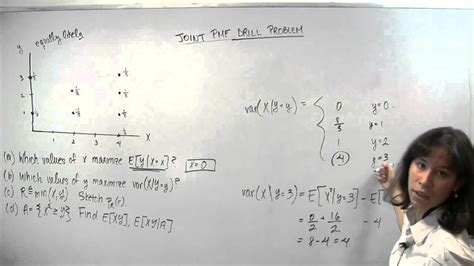 JOINT PMF DRILL PROBLEM
y equally likely
3
2
1
1 2 3 4 x
(a) Which values of x maximize E[Y|X=x]? x=0
(b) Which values of y maximize var(X|Y=y)?
(c) R = min(X,Y). Sketch p_R(r).
(d) A = {X² ≥ Y}. Find E[XY], E[XY|A]
var(X|Y=y) =
0 y=0.
8/3 y=1
1 y=2
4 y=3
var(X|Y=3) = E[X²|Y=3] - E[X
= 0/2 + 16/2 - 4
= 8-4 = 4